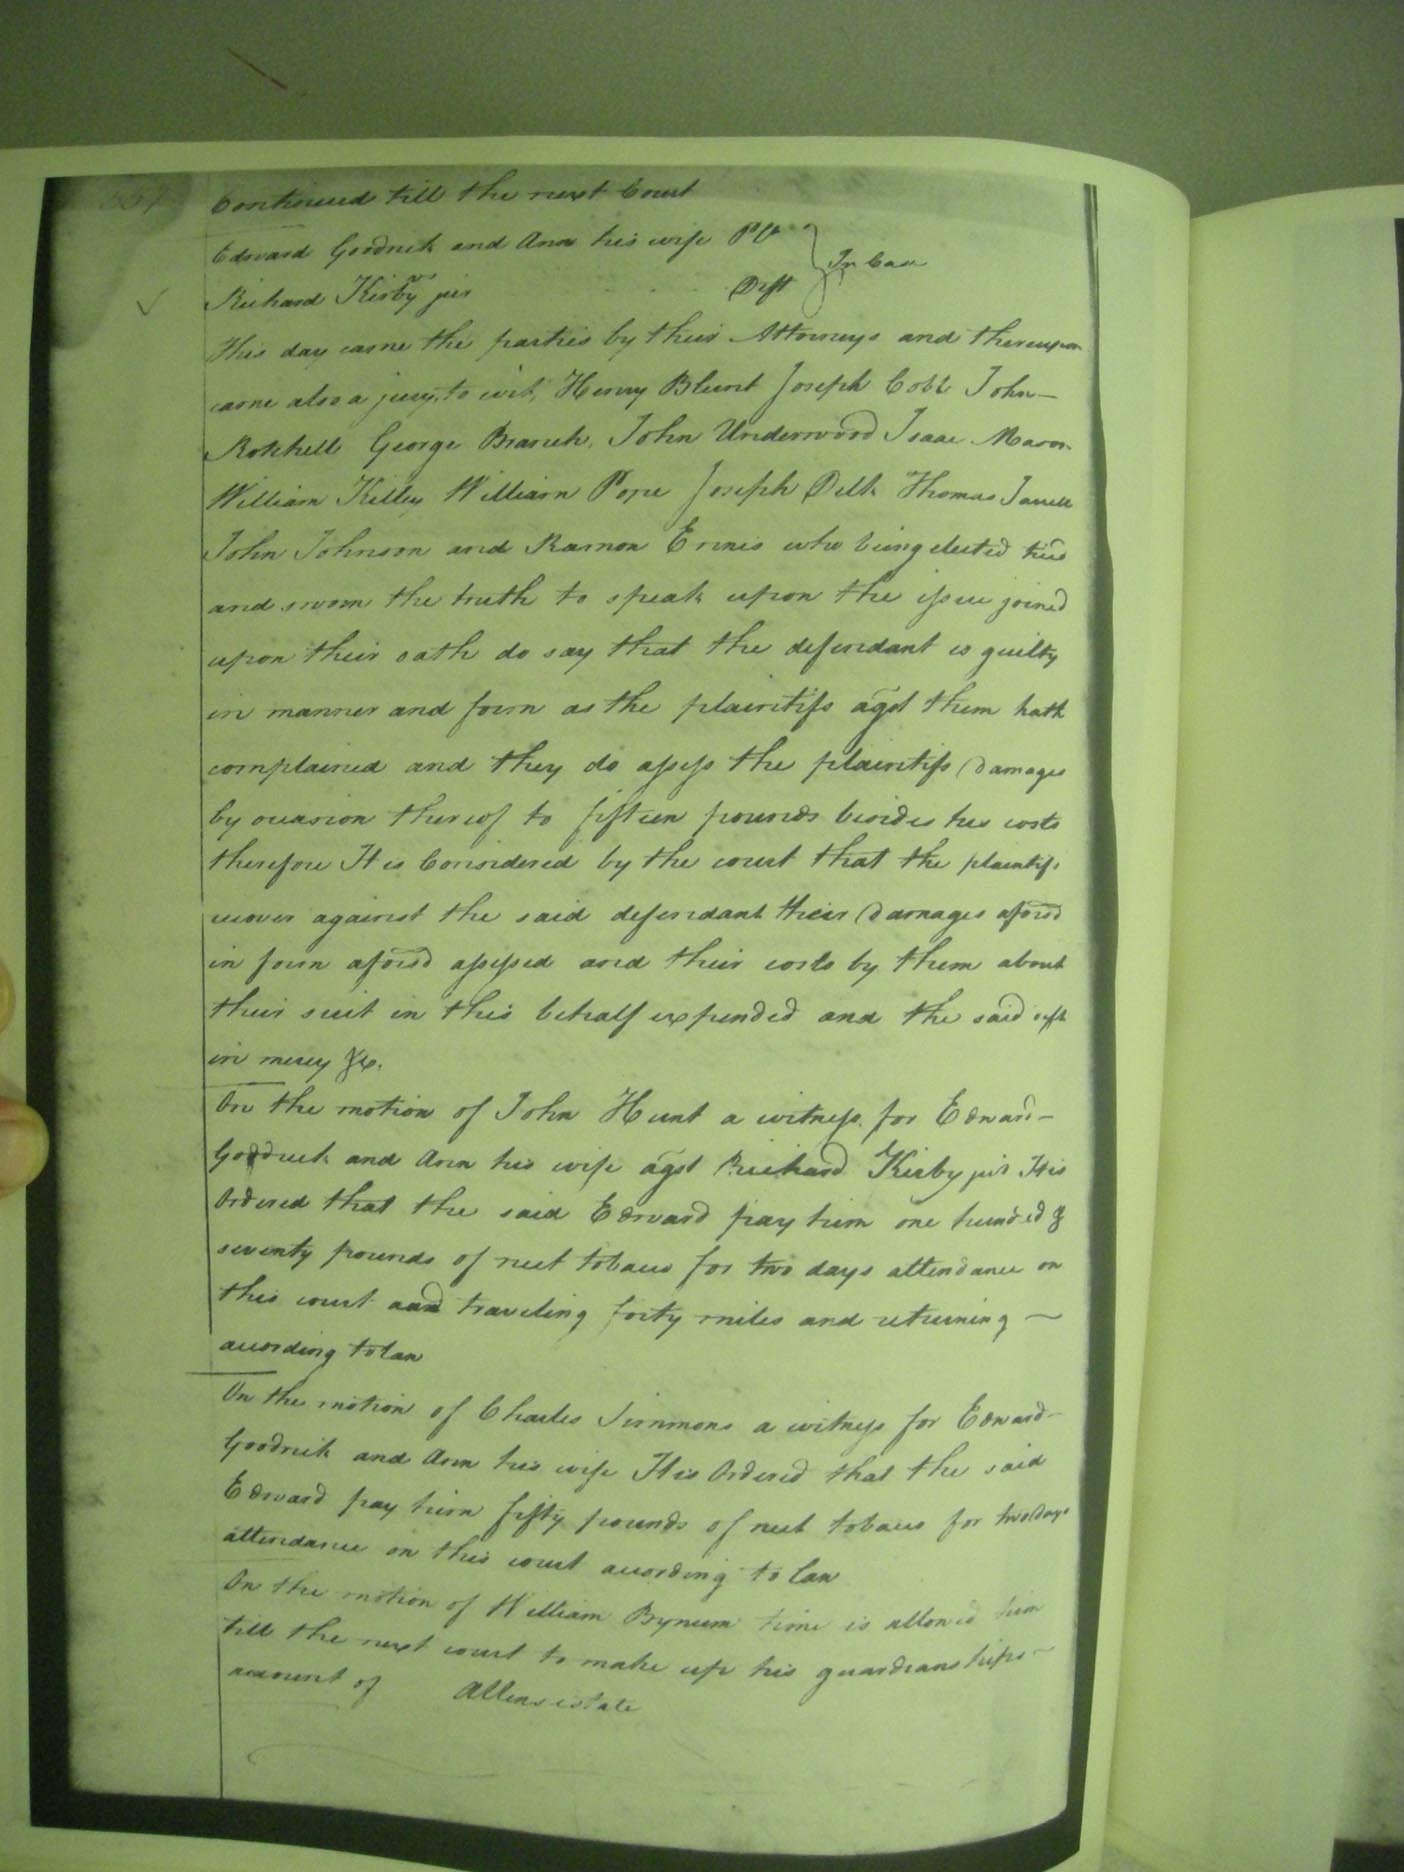 Continued till the next Court
Edward Goodrich and Ann his wife Plt
In Case
vs
Richard Kirby jur Deft
This day came the parties by their Attorneys and thereupon
came also a jury, to wit, Henry Blunt Joseph Cobb John
Rotchell George Branch, John Underwood Isaac Mason
William Killey William Pope Joseph Delk Thomas Jarrell
John Johnson and Ramon Ennis who being elected tried
and sworn the truth to speak upon the issue joined
upon their oath do say that the defendant is guilty
in manner and form as the plaintifs agst them hath
complained and they do assess the plaintifs damages
by occasion thereof to fifteen pounds besides his costs
therefore It is Considered by the court that the plaintifs
recover against the said defendant their damages aforsd
in form aforsd assessed and their costs by them about
their suit in this behalf expended and the said deft
in mercy &c.
On the motion of John Hunt a witness for Edward
Goodrich and Ann his wife agst Richard Kirby jur It is
Ordered that the said Edward pay him one hundred &
seventy pounds of neet tobacco for two days attendance on
this court and traveling forty miles and returning
according to law
On the motion of Charles Simmons a witness for Edward
Goodrich and Ann his wife It is Ordered that the said
Edward pay him fifty pounds of neet tobacco for two days
attendance on this court according to law
On the motion of William Bynum time is allowed him
till the next court to make up his guardianships
account of Allens estate